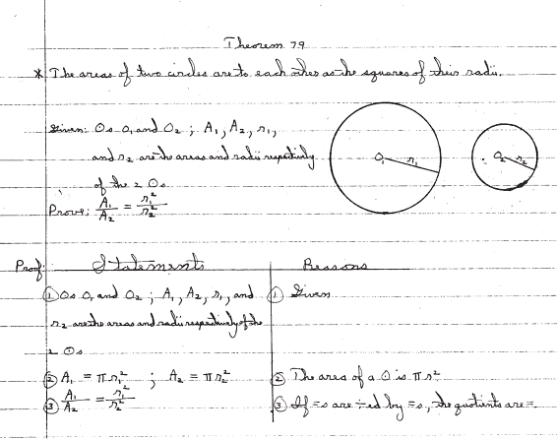 Theorem 79
* The areas of two circles are to each other as the squares of their radii.
Given: ⊙s O₁ and O₂ ; A₁, A₂, r₁,
and r₂ are the areas and radii respectively
of the 2 ⊙s
Prove: A₁/A₂ = r₁²/r₂²
O₁ r₁
O₂ r₂
Proof: Statements Reasons
① ⊙s O₁ and O₂ ; A₁, A₂, r₁, and ① Given
r₂ are the areas and radii respectively of the
2 ⊙s
② A₁ = πr₁² ; A₂ = πr₂² ② The area of a ⊙ is πr²
③ A₁/A₂ = r₁²/r₂² ③ If =s are ÷ed by =s, the quotients are =.